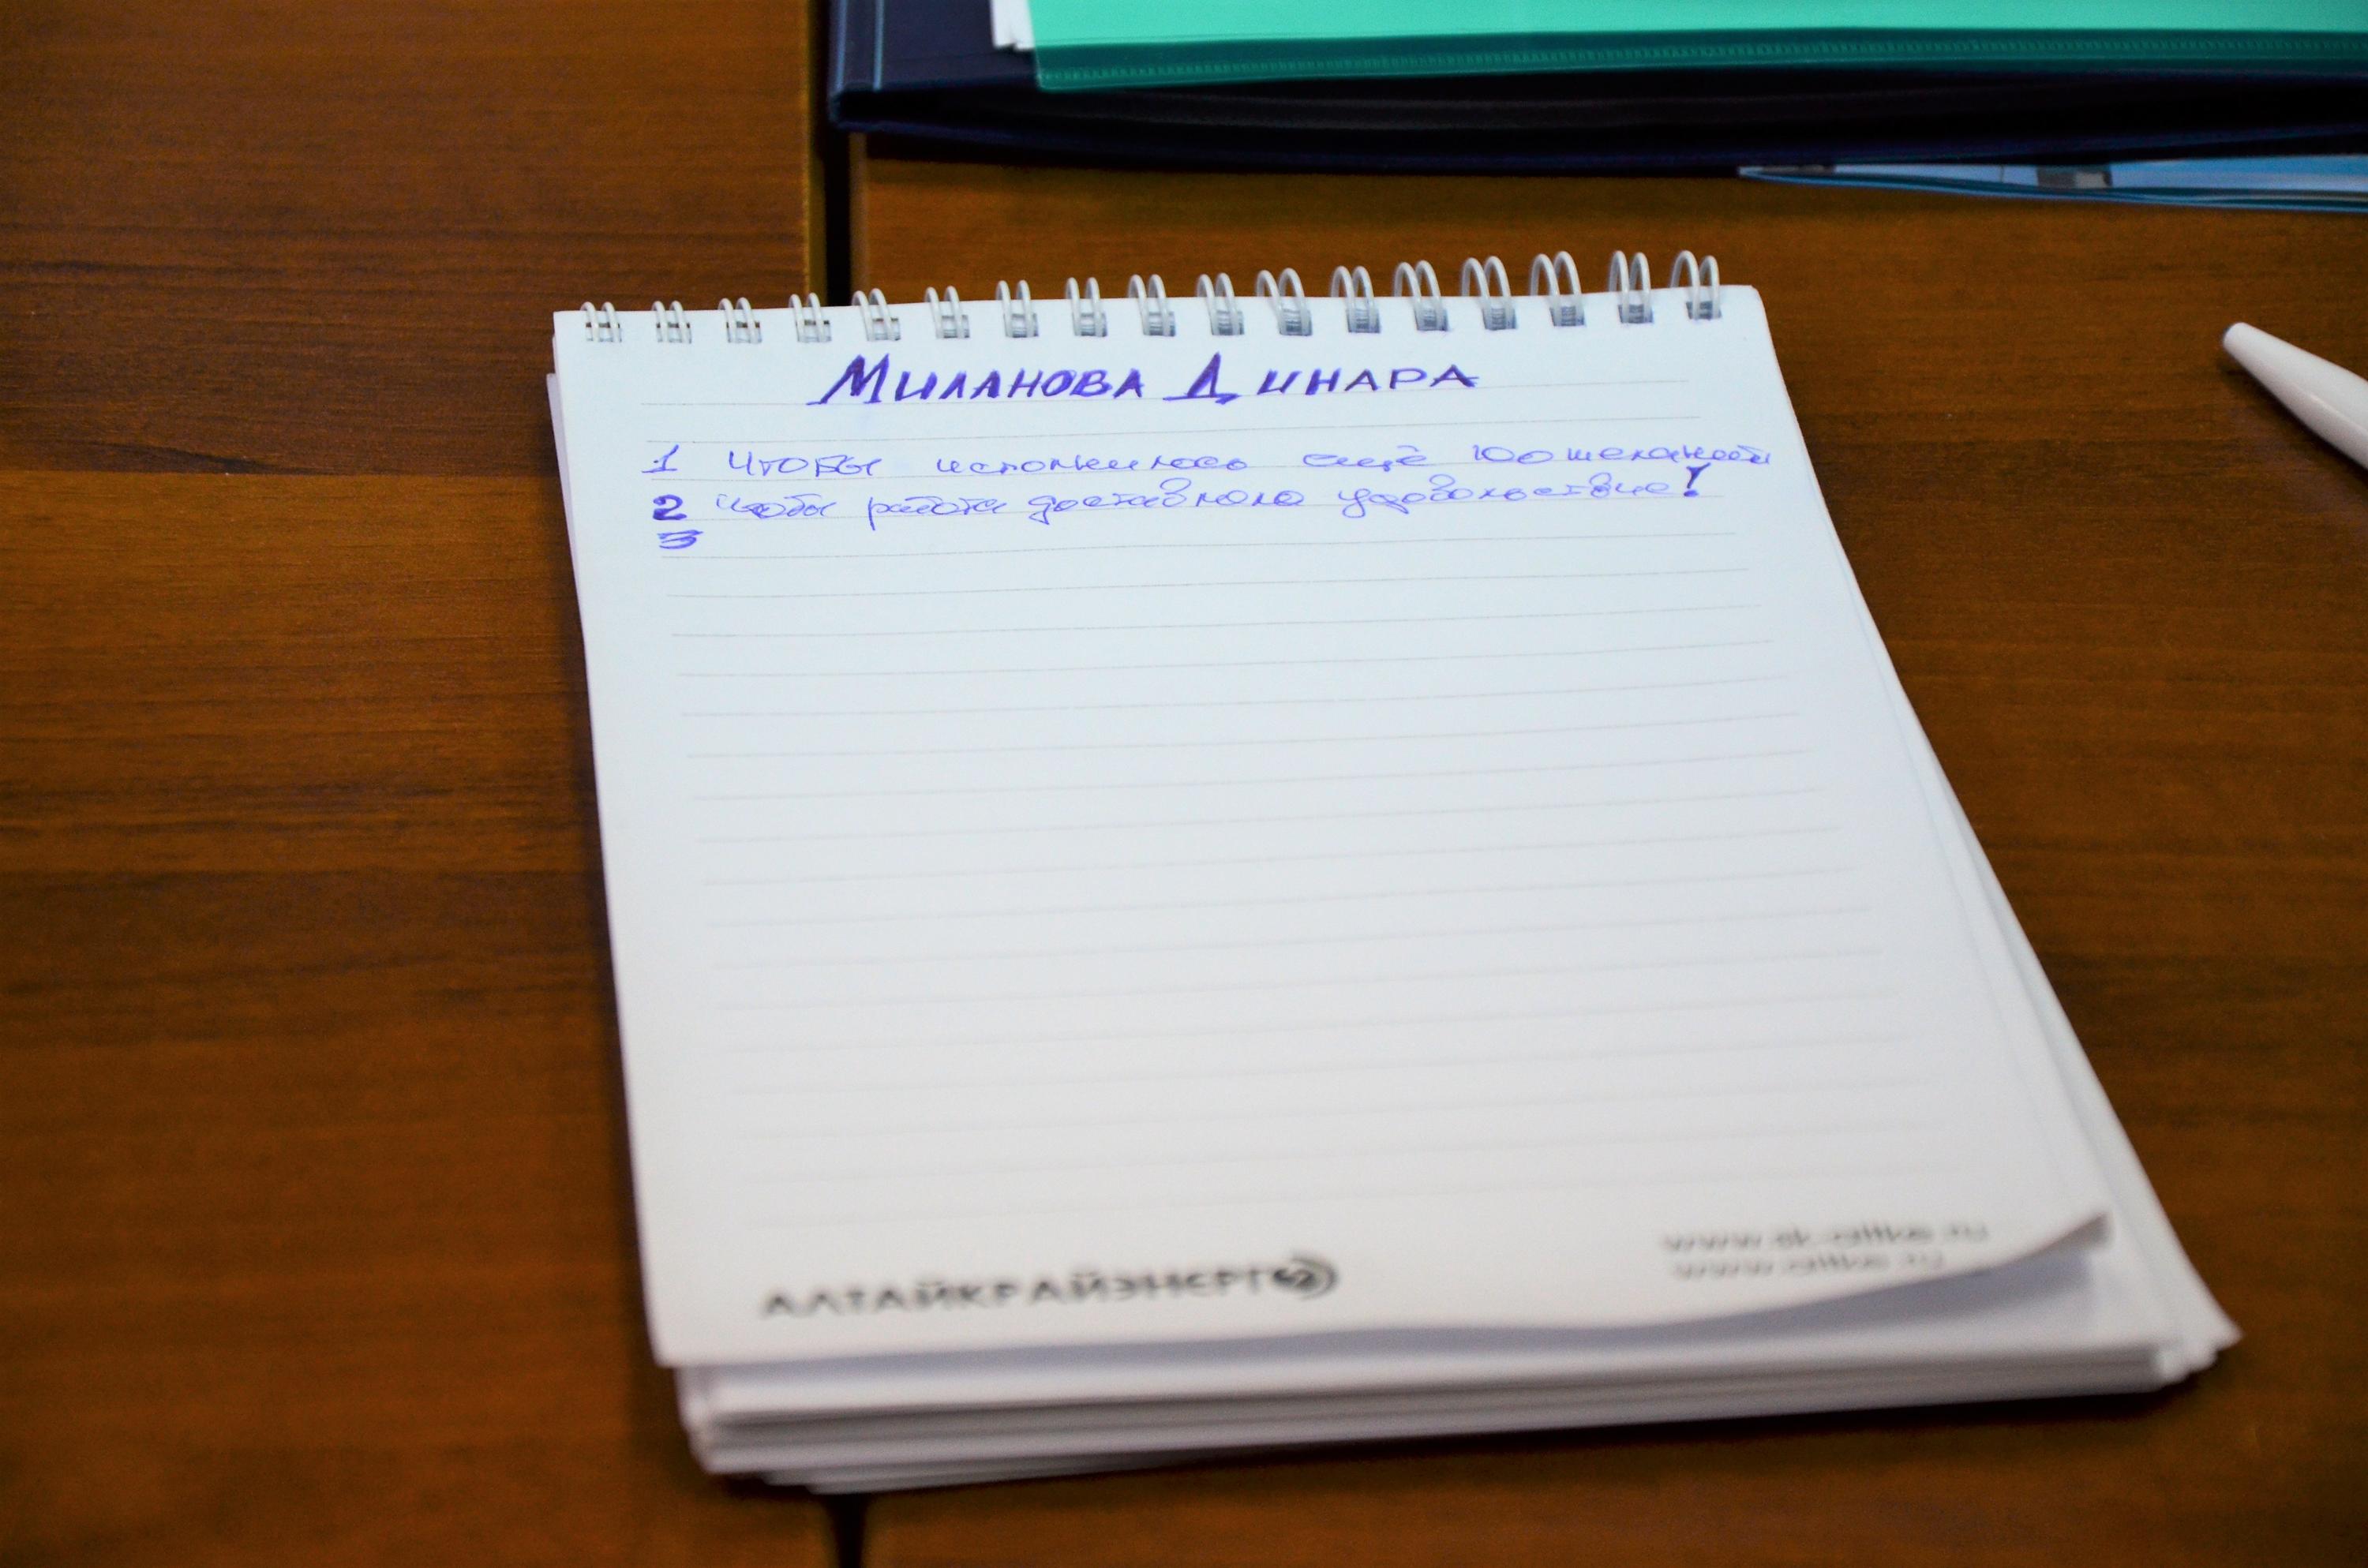 МИЛАНОВА ДИНАРА
1 Чтобы исполнилось ещё 100 желаний
2 Чтобы работа доставляла удовольствие!
3
АЛТАЙКРАЙЭНЕРГО